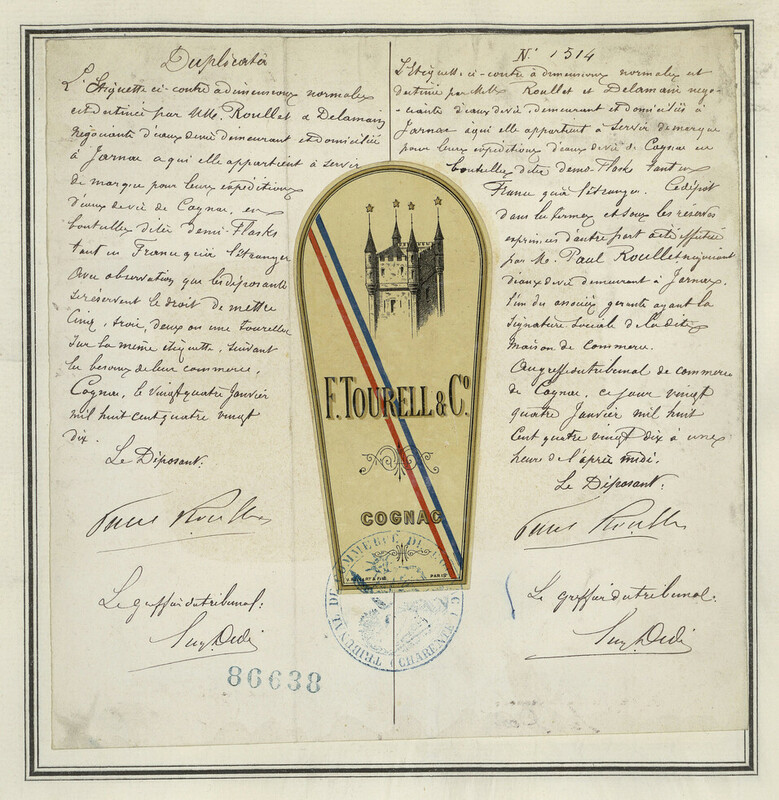 Duplicata
L'Etiquette ci-contre à dimensions normales
est destinée par MM. Roullet & Delamain
négociants d'eaux de vie demeurant et domiciliés
à Jarnac à qui elle appartient à servir
de marque pour leurs expéditions
d'eaux de vie de Cognac, en
bouteilles dites demi-Flasks
tant en France qu'à l'étranger
Avec observation que les déposants
se réservent le droit de mettre
Cinq, trois, deux ou une tourelles
sur la même étiquette, suivant
les besoins de leur commerce.
Cognac, le vingt quatre Janvier
mil huit cent quatre vingt
dix.
Le Déposant:
Paul Roullet
Le greffier du tribunal:
86638
N° 1514
L'Etiquette ci-contre à dimensions normales est
destinée par MM. Roullet et Delamain négo-
-ciants d'eaux de vie, demeurant et domiciliés à
Jarnac à qui elle appartient à servir de marque
pour leurs expéditions d'eaux de vie de Cognac en
bouteilles dites demi-Flasks tant en
France qu'à l'étranger. Ce dépôt
dans la forme et sous les réserves
exprimées d'autre part a été effectué
par M. Paul Roullet négociant
d'eaux de vie demeurant à Jarnac,
l'un des associés gérants ayant la
signature sociale de la dite
maison de commerce.
Au greffe du tribunal de commerce
de Cognac, ce jour vingt
quatre Janvier mil huit
cent quatre vingt dix à une
heure de l'après midi.
Le Déposant:
Paul Roullet
Le greffier du tribunal:
F. TOURELL & Co.
COGNAC
PARIS
TRIBUNAL DE COMMERCE DE COGNAC (CHARENTE)